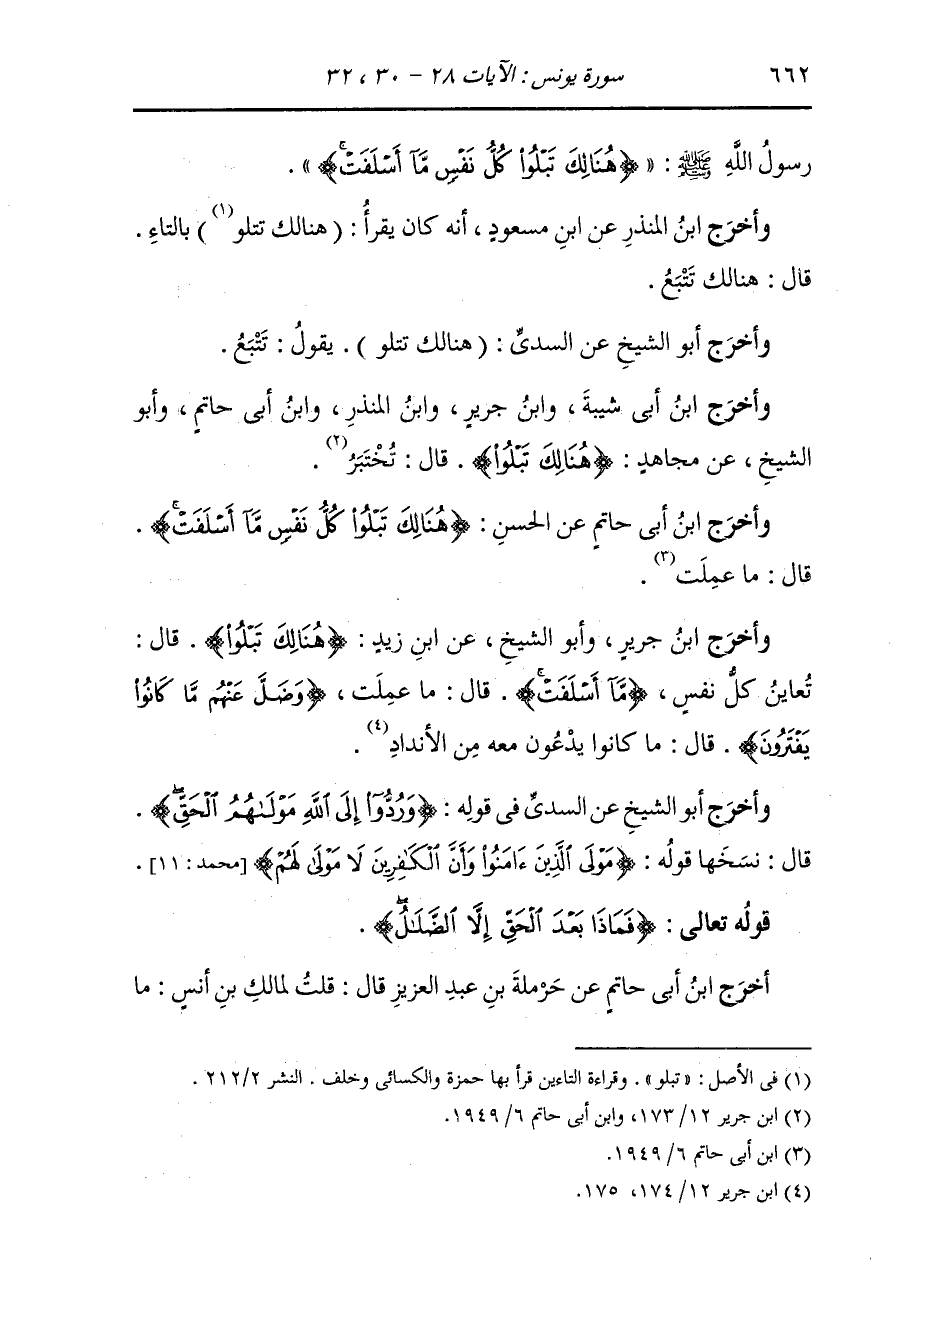 ٦٦٢ سورة يونس : الآيات ٢٨ - ٣٠ ، ٣٢
رسولُ اللَّهِ ﷺ : « ﴿هُنَالِكَ تَبْلُوا۟ كُلُّ نَفْسٍ مَّآ أَسْلَفَتْۚ﴾ » .
وأخرَج ابنُ المنذرِ عن ابنِ مسعودٍ ، أنه كان يقرأُ : ( هنالك تتلو(١) ) بالتاءِ .
قال : هنالك تَتْبَعُ .
وأخرَج أبو الشيخِ عن السدىِّ : ( هنالك تتلو ) . يقولُ : تَتْبَعُ .
وأخرَج ابنُ أبى شيبةَ ، وابنُ جريرٍ ، وابنُ المنذرِ ، وابنُ أبى حاتمٍ ، وأبو
الشيخِ ، عن مجاهدٍ : ﴿هُنَالِكَ تَبْلُوا۟﴾ . قال : تُخْتَبَرُ(٢) .
وأخرَج ابنُ أبى حاتمٍ عن الحسنِ : ﴿هُنَالِكَ تَبْلُوا۟ كُلُّ نَفْسٍ مَّآ أَسْلَفَتْۚ﴾ .
قال : ما عمِلَت(٣) .
وأخرَج ابنُ جريرٍ ، وأبو الشيخِ ، عن ابنِ زيدٍ : ﴿هُنَالِكَ تَبْلُوا۟﴾ . قال :
تُعاينُ كلُّ نفسٍ ، ﴿مَّآ أَسْلَفَتْۚ﴾ . قال : ما عمِلَت ، ﴿وَضَلَّ عَنْهُم مَّا كَانُوا۟
يَفْتَرُونَ﴾ . قال : ما كانوا يدْعُون معه مِن الأندادِ(٤) .
وأخرَج أبو الشيخِ عن السدىِّ فى قولِه : ﴿وَرُدُّوٓا۟ إِلَى ٱللَّهِ مَوْلَىٰهُمُ ٱلْحَقِّۖ﴾ .
قال : نسَخَها قولُه : ﴿مَوْلَى ٱلَّذِينَ ءَامَنُوا۟ وَأَنَّ ٱلْكَٰفِرِينَ لَا مَوْلَىٰ لَهُمْ﴾ [محمد : ١١] .
قولُه تعالى : ﴿فَمَاذَا بَعْدَ ٱلْحَقِّ إِلَّا ٱلضَّلَٰلُۖ﴾ .
أخرَج ابنُ أبى حاتمٍ عن حَرْملةَ بنِ عبدِ العزيزِ قال : قلتُ لمالكِ بنِ أنسٍ : ما
(١) فى الأصل : « تبلو » . وقراءة التاءين قرأ بها حمزة والكسائى وخلف . النشر ٢/٢١٢ .
(٢) ابن جرير ١٢/ ١٧٣، وابن أبى حاتم ٦/ ١٩٤٩.
(٣) ابن أبى حاتم ٦/ ١٩٤٩.
(٤) ابن جرير ١٢/ ١٧٤، ١٧٥.